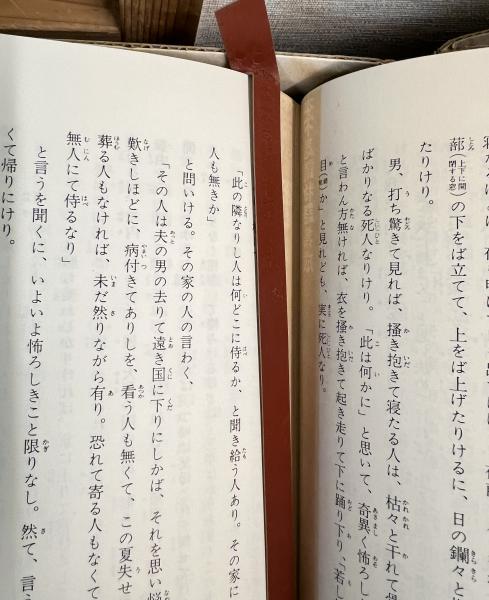 蔀（上下に開閉する窓）の下をば立てて、上をば上げたりけるに、日の鑭々と
たりけり。
男、打ち驚きて見れば、掻き抱きて寝たる人は、枯々と干れて
ばかりなる死人なりけり。「此は何かに」と思いて、奇異く怖ろし
と言わん方無ければ、衣を掻き抱きて起き走りて下に踊り下り、「若し
目（僻目）か」と見れども、実に死人なり。
「此の隣なりし人は何どこに侍るか、と聞き給う人あり。その家に
人も無きか」
と問いける。その家の人の言わく、
「その人は夫の男の去りて遠き国に下りにしかば、それを思い
歎きしほどに、病付きてありしを、看う人も無くて、この夏失せ
葬る人もなければ、未だ然りながら有り。恐れて寄る人もなくて
無人にて侍るなり」
と言うを聞くに、いよいよ怖ろしきこと限りなし。然て、言う
くて帰りにけり。